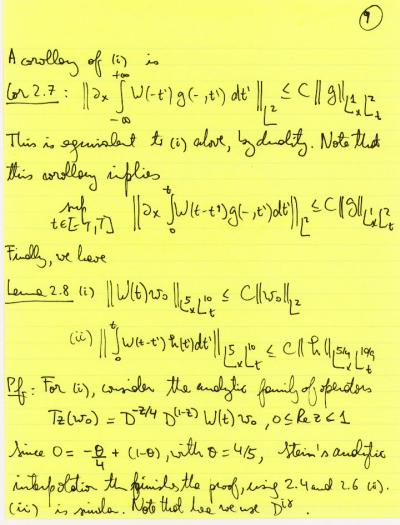 9
A corollary of (i) is
Cor 2.7 : ‖∂x ∫_{-∞}^{+∞} W(-t') g(-,t') dt' ‖_{L^2} ≤ C ‖g‖_{L^1_x L^2_t}
This is equivalent to (i) above, by duality. Note that
this corollary implies
sup_{t∈[-T,T]} ‖∂x ∫_0^t W(t-t') g(-,t') dt'‖_{L^2} ≤ C‖g‖_{L^1_x L^2_t}
Finally, we have
Lemma 2.8 (i) ‖W(t)w_0‖_{L^5_x L^{10}_t} ≤ C‖w_0‖_{L^2}
(ii) ‖∫_0^t W(t-t') h(t') dt'‖_{L^5_x L^{10}_t} ≤ C‖h‖_{L^{5/4}_x L^{10/9}_t}
Pf : For (i), consider the analytic family of operators
Tz(w_0) = D^{-z/4} D^{(1-z)} W(t) w_0 , 0 ≤ Re z ≤ 1
Since 0 = -θ/4 + (1-θ), with θ = 4/5, Stein's analytic
interpolation finishes the proof, using 2.4 and 2.6 (i).
(ii) is similar. Note that here we use D^{iγ}.